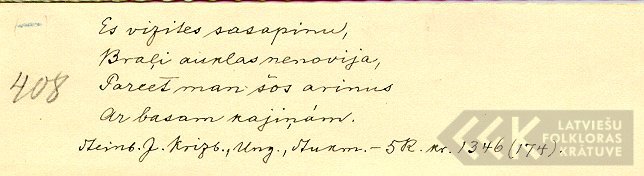 Es vizites sasapinu,
Braļi auklas nenovija,
408
Pareet man šos arinus
Ar basam kajiņām.
Steinb. J. Krizb., Ung., Stukm. – 5R. nr. 1346 (174).
LATVIEŠU
FOLKLORAS
KRĀTUVE